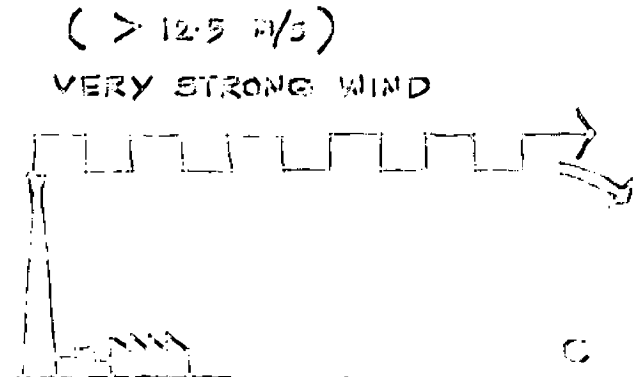 ( > 12.5 M/S )
VERY STRONG WIND
C